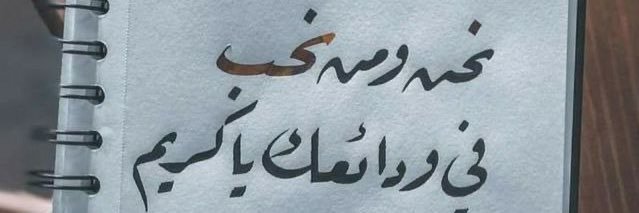 نحن ومن نحب
في ودائعك يا كريم